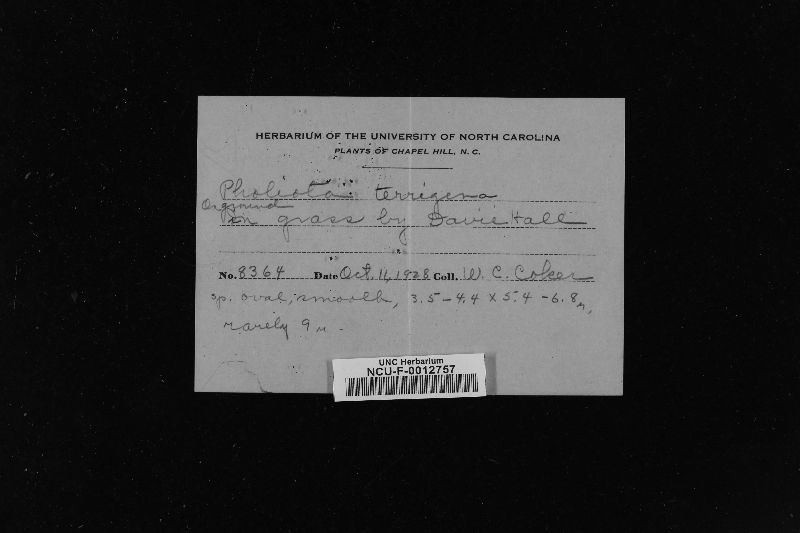 HERBARIUM OF THE UNIVERSITY OF NORTH CAROLINA
PLANTS OF CHAPEL HILL, N. C.
Pholiota terrigena
On ground
in grass by Davie Hall
No. 8364 Date Oct. 11, 1928 Coll. W. C. Coker
sp. oval, smooth, 3.5-4.4 x 5.4-6.8µ,
rarely 9µ.
UNC Herbarium
NCU-F-0012757